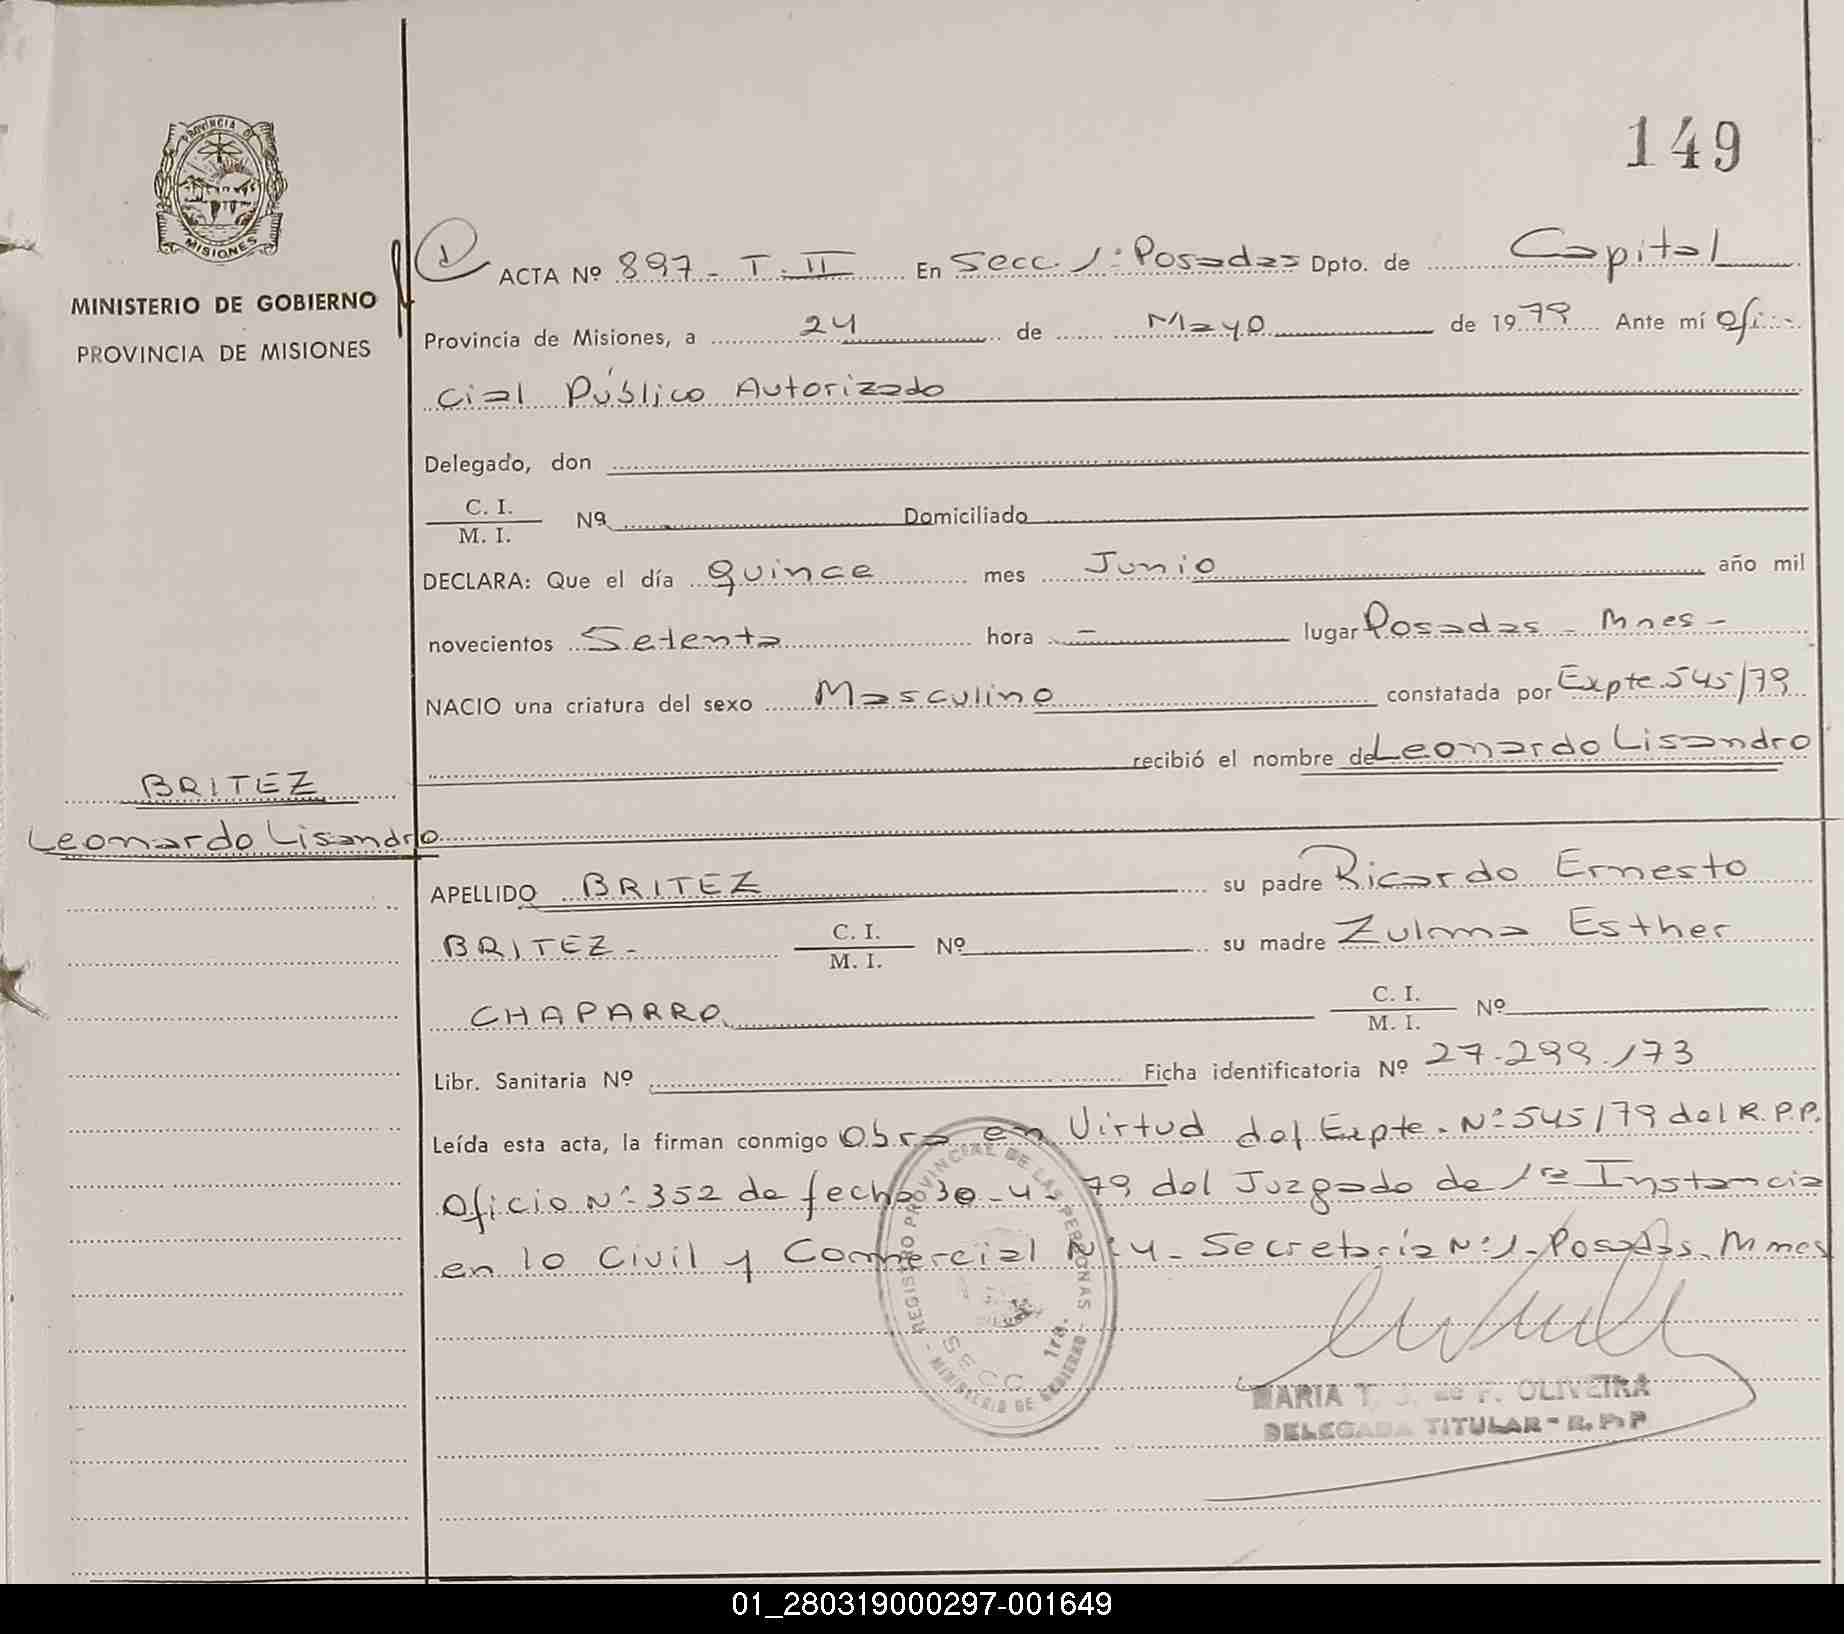 149
PROVINCIA DE
MISIONES
MINISTERIO DE GOBIERNO
PROVINCIA DE MISIONES
1 ACTA Nº 897 - T. II En Secc. 1ª Posadas Dpto. de Capital
Provincia de Misiones, a 24 de Mayo de 1979 Ante mí Ofi-
cial Público Autorizado
Delegado, don
C. I.
M. I.
Nº Domiciliado
DECLARA: Que el día quince mes Junio año mil
novecientos Setenta hora - lugar Posadas - Mnes -
NACIO una criatura del sexo Masculino constatada por Expte. 545/79
recibió el nombre de Leonardo Lisandro
BRITEZ
Leonardo Lisandro
APELLIDO BRITEZ su padre Ricardo Ernesto
BRITEZ - C. I. / M. I. Nº su madre Zulma Esther
CHAPARRO C. I. / M. I. Nº
Libr. Sanitaria Nº Ficha identificatoria Nº 27.299.173
Leída esta acta, la firman conmigo Obra en Virtud del Expte. Nº 545/79 del R.P.P.
Oficio Nº 352 de fecha 30-4-79 del Juzgado de 1ra Instancia
en lo Civil y Commercial Nº 4 - Secretaría Nº 1 - Posadas. Mnes
REGISTRO PROVINCIAL DE LAS PERSONAS
SECC 1ra.
MINISTERIO DE GOBIERNO
MARIA T. DE F. OLIVEIRA
DELEGADA TITULAR - R. P. P
01_280319000297-001649